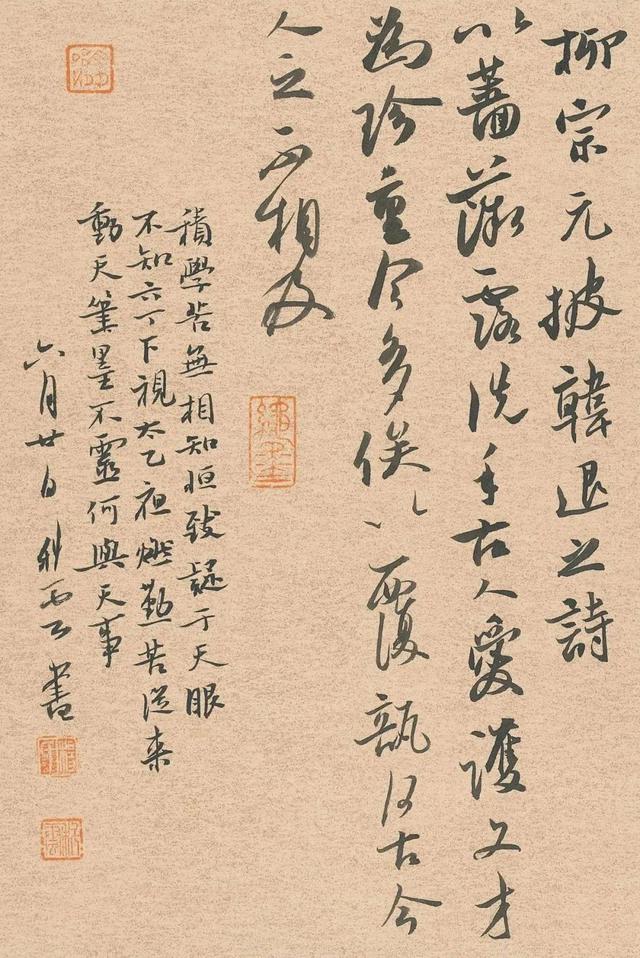 柳宗元披韓退之詩
以薔薇露洗手古人愛護文才
為珍重今多俟以覆瓿何古今
人之不相及
積學苦無相知恒致疑于天眼
不知六丁下視太乙夜燃勤苦從来
動天筆墨不靈何與天事
六月廿日書